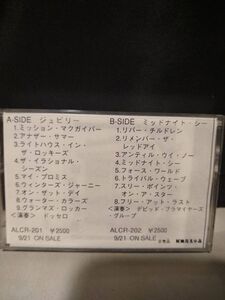 A-SIDE ジュビリー
1.ミッション・マクガイバー
2.アナザー・サマー
3.ライトハウス・イン・
ザ・ロッキーズ
4.ザ・イラショナル・
シーズン
5.マイ・プロミス
6.ウィンターズ・ジャーニー
7.オン・ザット・デイ
8.ウォーター・カラーズ
9.グランマズ・ロッカー
<演奏> ドッセロ
ALCR-201 ¥2500
9/21 ON SALE
B-SIDE ミッドナイト・シー
1.リバー・チルドレン
2.リメンバー・ザ・
レッドアイ
3.アンティル・ウィ・ノー
4.ミッドナイト・シー
5.フォース・ワールド
6.トライバル・ウェーブ
7.スリー・ポインツ・
オン・ア・スター
8.フリー・アット・ラスト
<演奏> デビッド・フライマイヤーズ
・グループ
ALCR-202 ¥2500
9/21 ON SALE